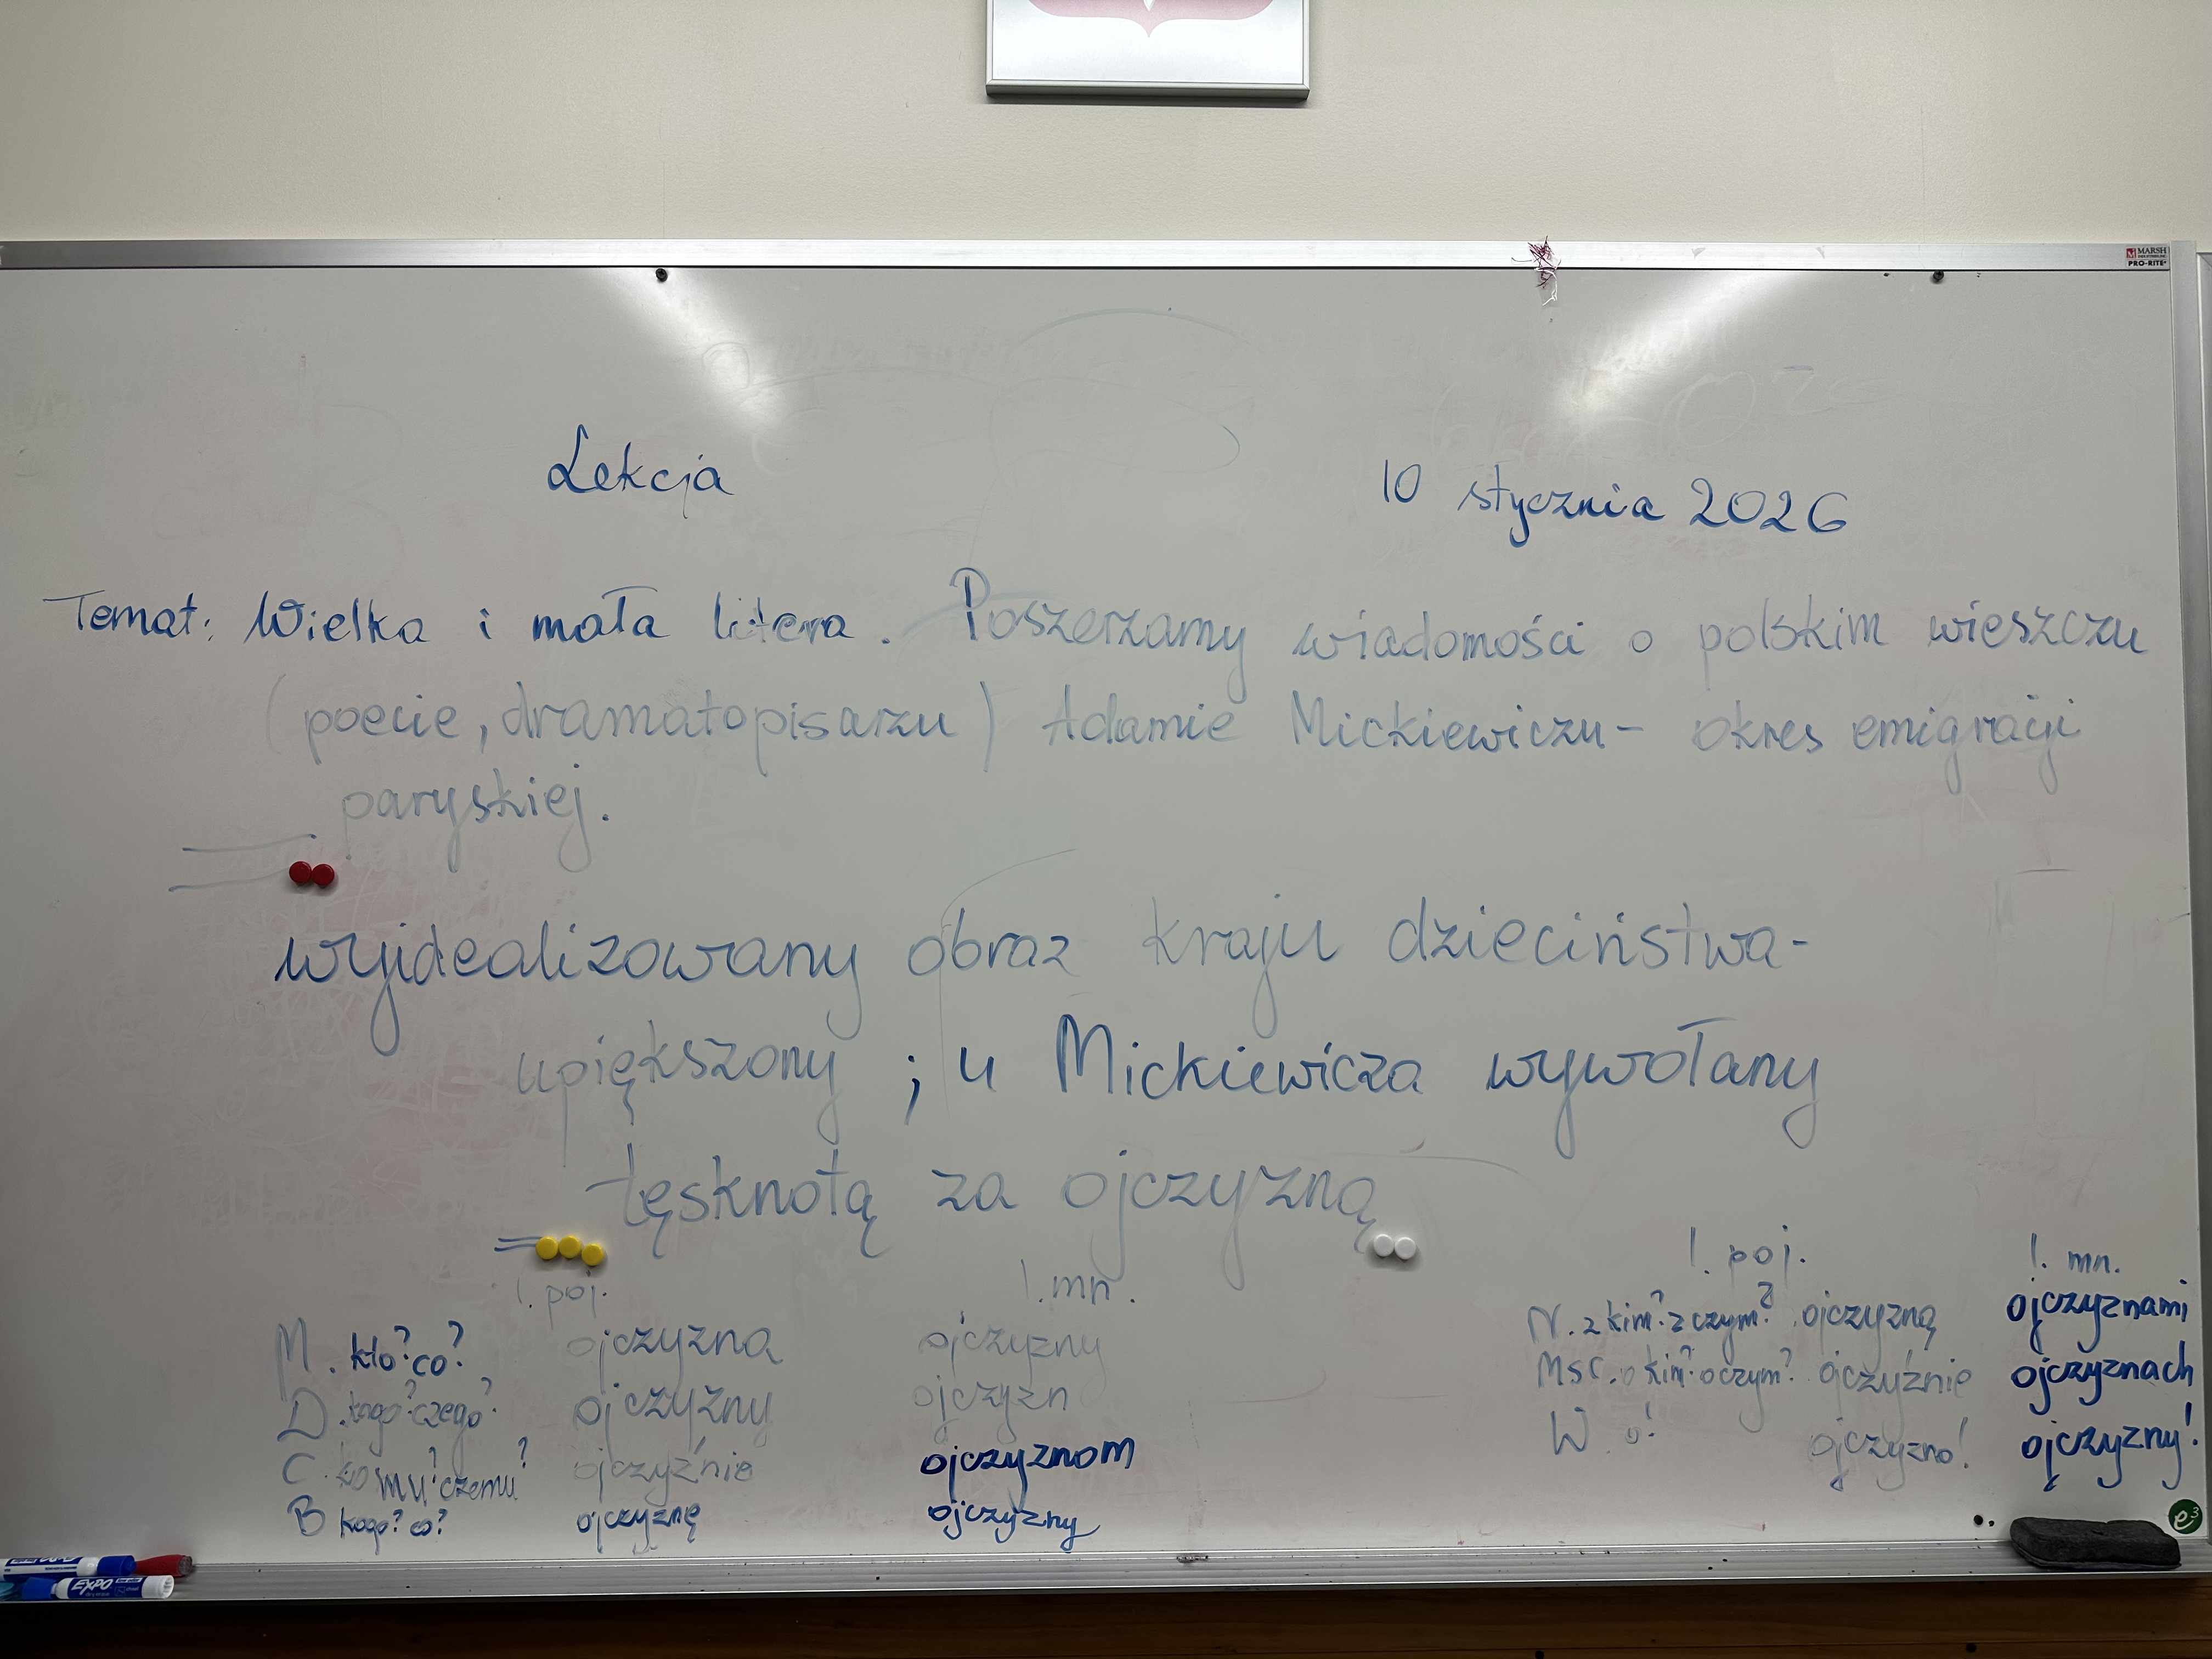 MARSH
PRO-RITE
Lekcja 10 stycznia 2026
Temat: Wielka i mała litera. Poszerzamy wiadomości o polskim wieszczu
(poecie, dramatopisarzu) Adamie Mickiewiczu - okres emigracji
paryskiej.
wyidealizowany obraz kraju dzieciństwa-
upiększony ; u Mickiewicza wywołany
tęsknotą za ojczyzną
l. poj. l. mn.
M. kto? co? ojczyzna ojczyzny
D. kogo? czego? ojczyzny ojczyzn
C. komu? czemu? ojczyźnie ojczyznom
B kogo? co? ojczyznę ojczyzny
l. poj. l. mn.
N. z kim? z czym? ojczyzną ojczyznami
Msc. o kim? o czym? ojczyźnie ojczyznach
W. o! ojczyzno! ojczyzny!
EXPO
e³